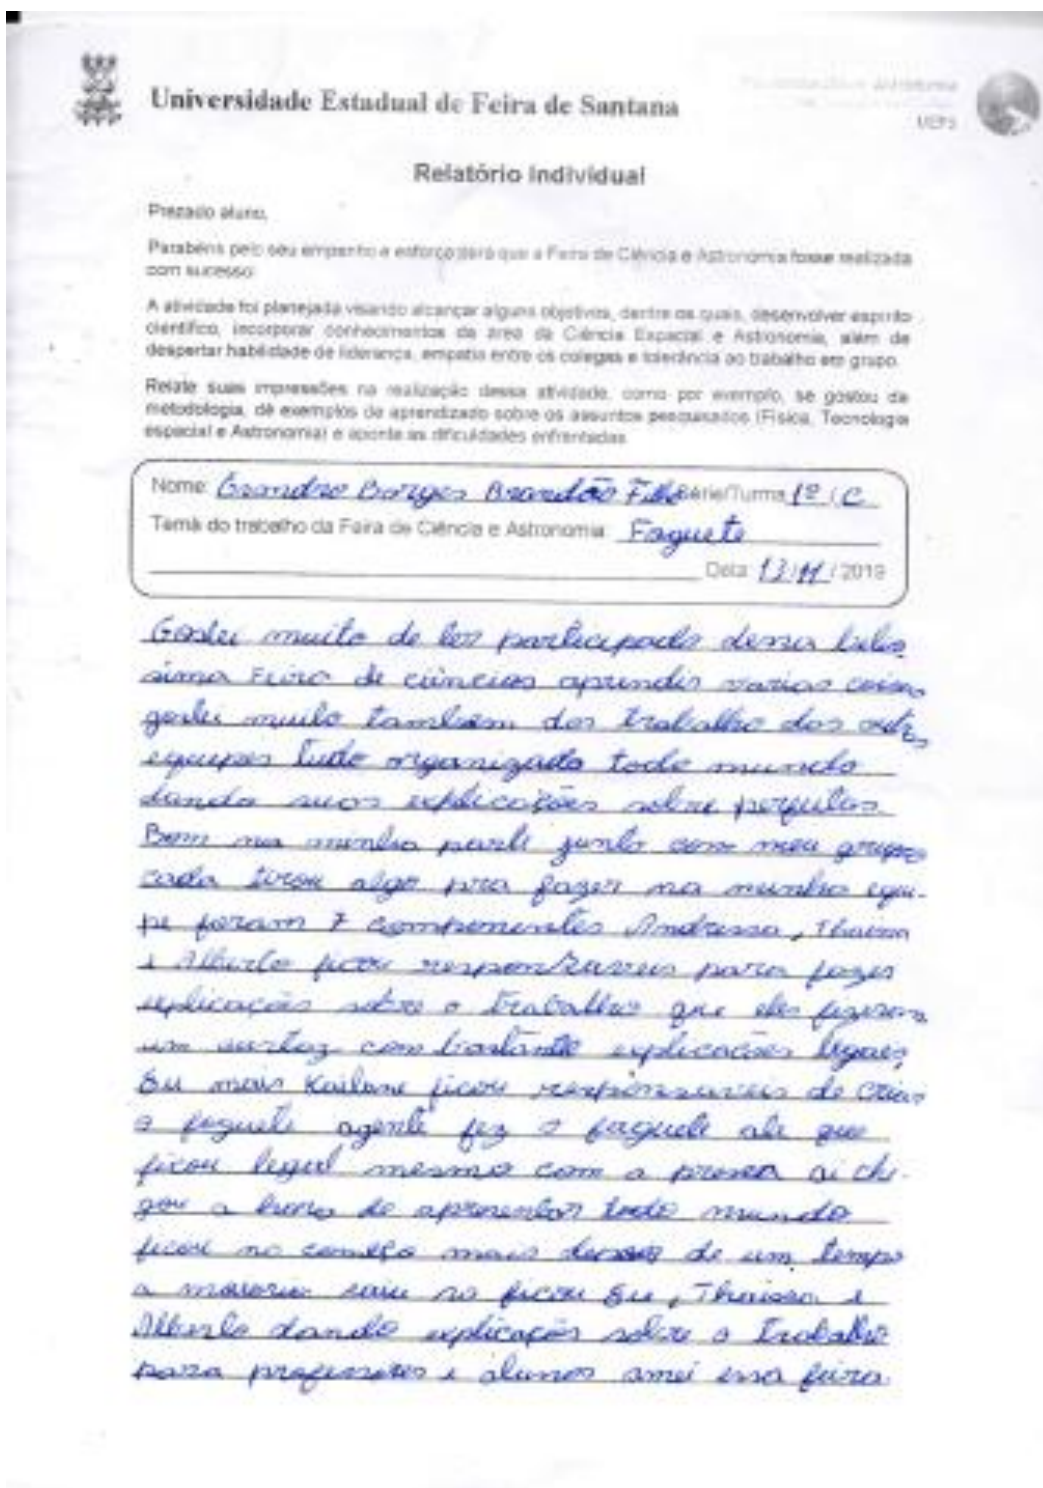 Universidade Estadual de Feira de Santana
Astronomia
UEFS
Relatório Individual
Prezado aluno,
Parabéns pelo seu empenho e esforço para que a Feira de Ciência e Astronomia fosse realizada
com sucesso.
A atividade foi planejada visando alcançar alguns objetivos, dentre os quais, desenvolver espírito
científico, incorporar conhecimentos da área da Ciência Espacial e Astronomia, além de
despertar habilidade de liderança, empatia entre os colegas e tolerância ao trabalho em grupo.
Relate suas impressões na realização dessa atividade, como por exemplo, se gostou da
metodologia, dê exemplos de aprendizado sobre os assuntos pesquisados (Física, Tecnologia
espacial e Astronomia) e aponte as dificuldades enfrentadas.
Nome: Borges Brandão Filho Série/Turma 1º / C
Tema do trabalho da Feira de Ciência e Astronomia: Foguete
Data: 13/11/2019
Gostei muito de ter participado dessa belis
sima Feira de ciências aprendir varias coisas
gostei muito tambem dos trabalho das outras
equipes tudo organizado todo mundo
dando suas explicações sobre
Bom na minha parte junto com meu grupo
cada tirou algo pra fazer na minha equi-
pe foram 7 componentes Andressa, Thaissa
e Alberto ficou para fazer
explicação sobre o trabalho que eles fizeram
um cartaz com bastante explicações legais,
Eu mais Kailane ficou de criar
o foguete agente fez o foguete ate que
ficou legal mesmo com a pressa ai che-
gou a hora de apresentar todo mundo
ficou no começo mais depois de um tempo
a maioria saiu so ficou Eu, Thaissa e
Alberto dando explicação sobre o Trabalho
para professores e alunos amei essa feira.